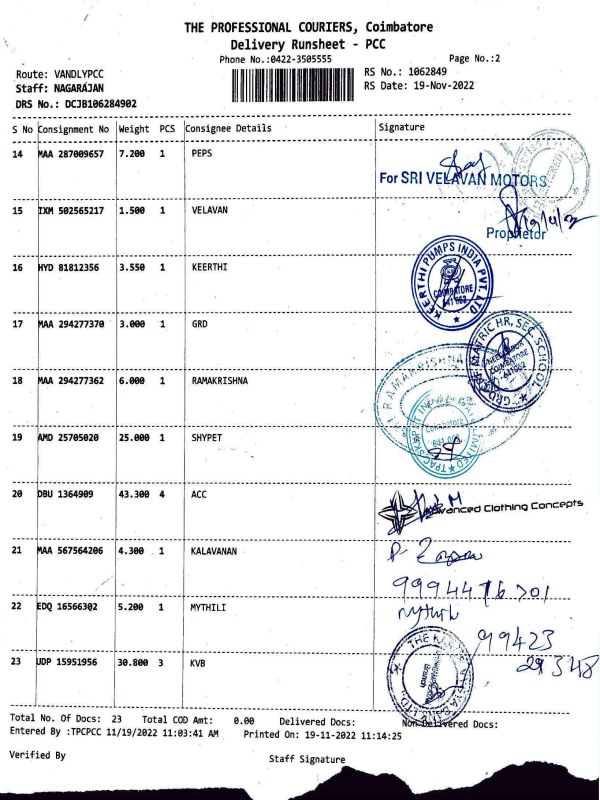 THE PROFESSIONAL COURIERS, Coimbatore
Delivery Runsheet - PCC
Phone No.:0422-3505555
Page No.:2
Route: VANDLYPCC
RS No.: 1062849
Staff: NAGARAJAN
RS Date: 19-Nov-2022
DRS No.: DCJB106284902
S No Consignment No Weight PCS Consignee Details Signature
14 MAA 287009657 7.200 1 PEPS
For SRI VELAVAN MOTORS
15 IXM 502565217 1.500 1 VELAVAN
Proprietor
16 HYD 81812356 3.550 1 KEERTHI
KEERTHI PUMPS INDIA PVT. LTD
COIMBATORE
641 062
17 MAA 294277370 3.000 1 GRD
GRD MATRIC HR. SEC. SCHOOL
COIMBATORE
641062
18 MAA 294277362 6.000 1 RAMAKRISHNA
RAMAKRISHNA
19 AMD 25705020 25.000 1 SHYPET
Coimbatore
LIMITED
20 DBU 1364909 43.300 4 ACC
Advanced Clothing Concepts
21 MAA 567564206 4.300 1 KALAVANAN
22 EDQ 16566302 5.200 1 MYTHILI
Mythili
99423
29348
23 UDP 15951956 30.800 3 KVB
Total No. Of Docs: 23 Total COD Amt: 0.00 Delivered Docs: Non-Delivered Docs:
Entered By :TPCPCC 11/19/2022 11:03:41 AM Printed On: 19-11-2022 11:14:25
Verified By
Staff Signature